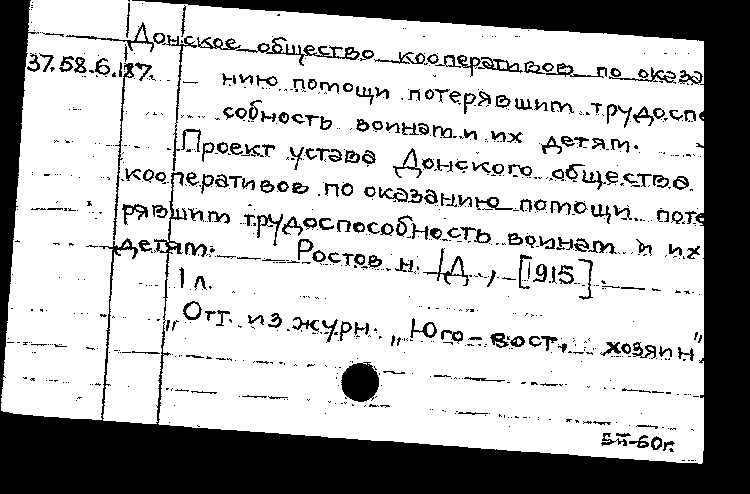 Донское общество кооперативов по оказа
37.58.6.187.
нию помощи потерявшим трудоспо
собность воинам и их детям.
Проект устава Донского общества
кооперативов по оказанию помощи поте
рявшим трудоспособность воинам и их
детям. Ростов н. /Д., [1915].
1 л.
„Отт. из журн. „Юго-вост. хозяин"
5П-60г.